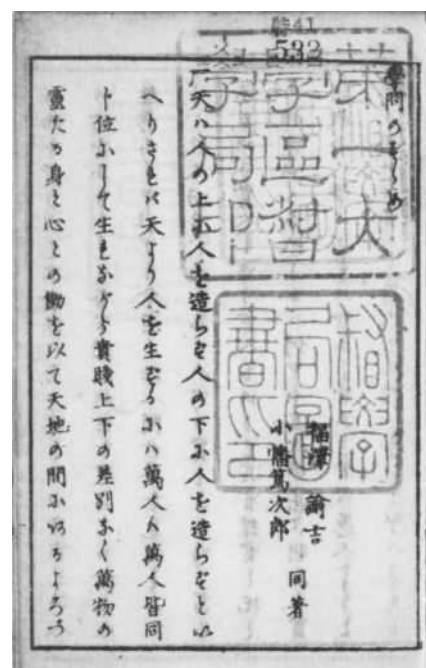 特41
532
第一大
學區督
學局印
學問のすゝめ
福澤諭吉
小幡篤次郎
同著
天ハ人の上に人を造らず人の下に人を造らずとい
へりされバ天より人を生ずるにハ萬人ハ萬人皆同
じ位にして生れながら貴賤上下の差別なく萬物の
靈たる身と心との働を以て天地の間にあるよろづ